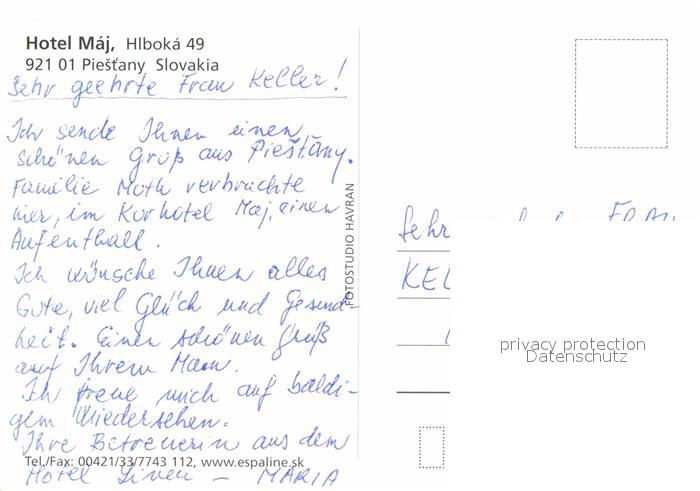 Hotel Máj, Hlboká 49
921 01 Piešťany Slovakia
Sehr geehrte Frau Keller!
Ich sende Ihnen einen
schönen Gruß aus Piešťany.
Familie Moth verbrachte
hier, im Kurhotel Maj, einen
Aufenthalt.
Ich wünsche Ihnen alles
Gute, viel Glück und Gesund-
heit. Einen schönen Gruß
auf Ihrem Mann.
Ich freue mich auf baldi-
gem Wiedersehen.
Ihre Betreuerin aus dem
Hotel – MARIA
Tel./Fax: 00421/33/7743 112, www.espaline.sk
FOTOSTUDIO HAVRAN
Sehr FRAU
KEL
privacy protection
Datenschutz